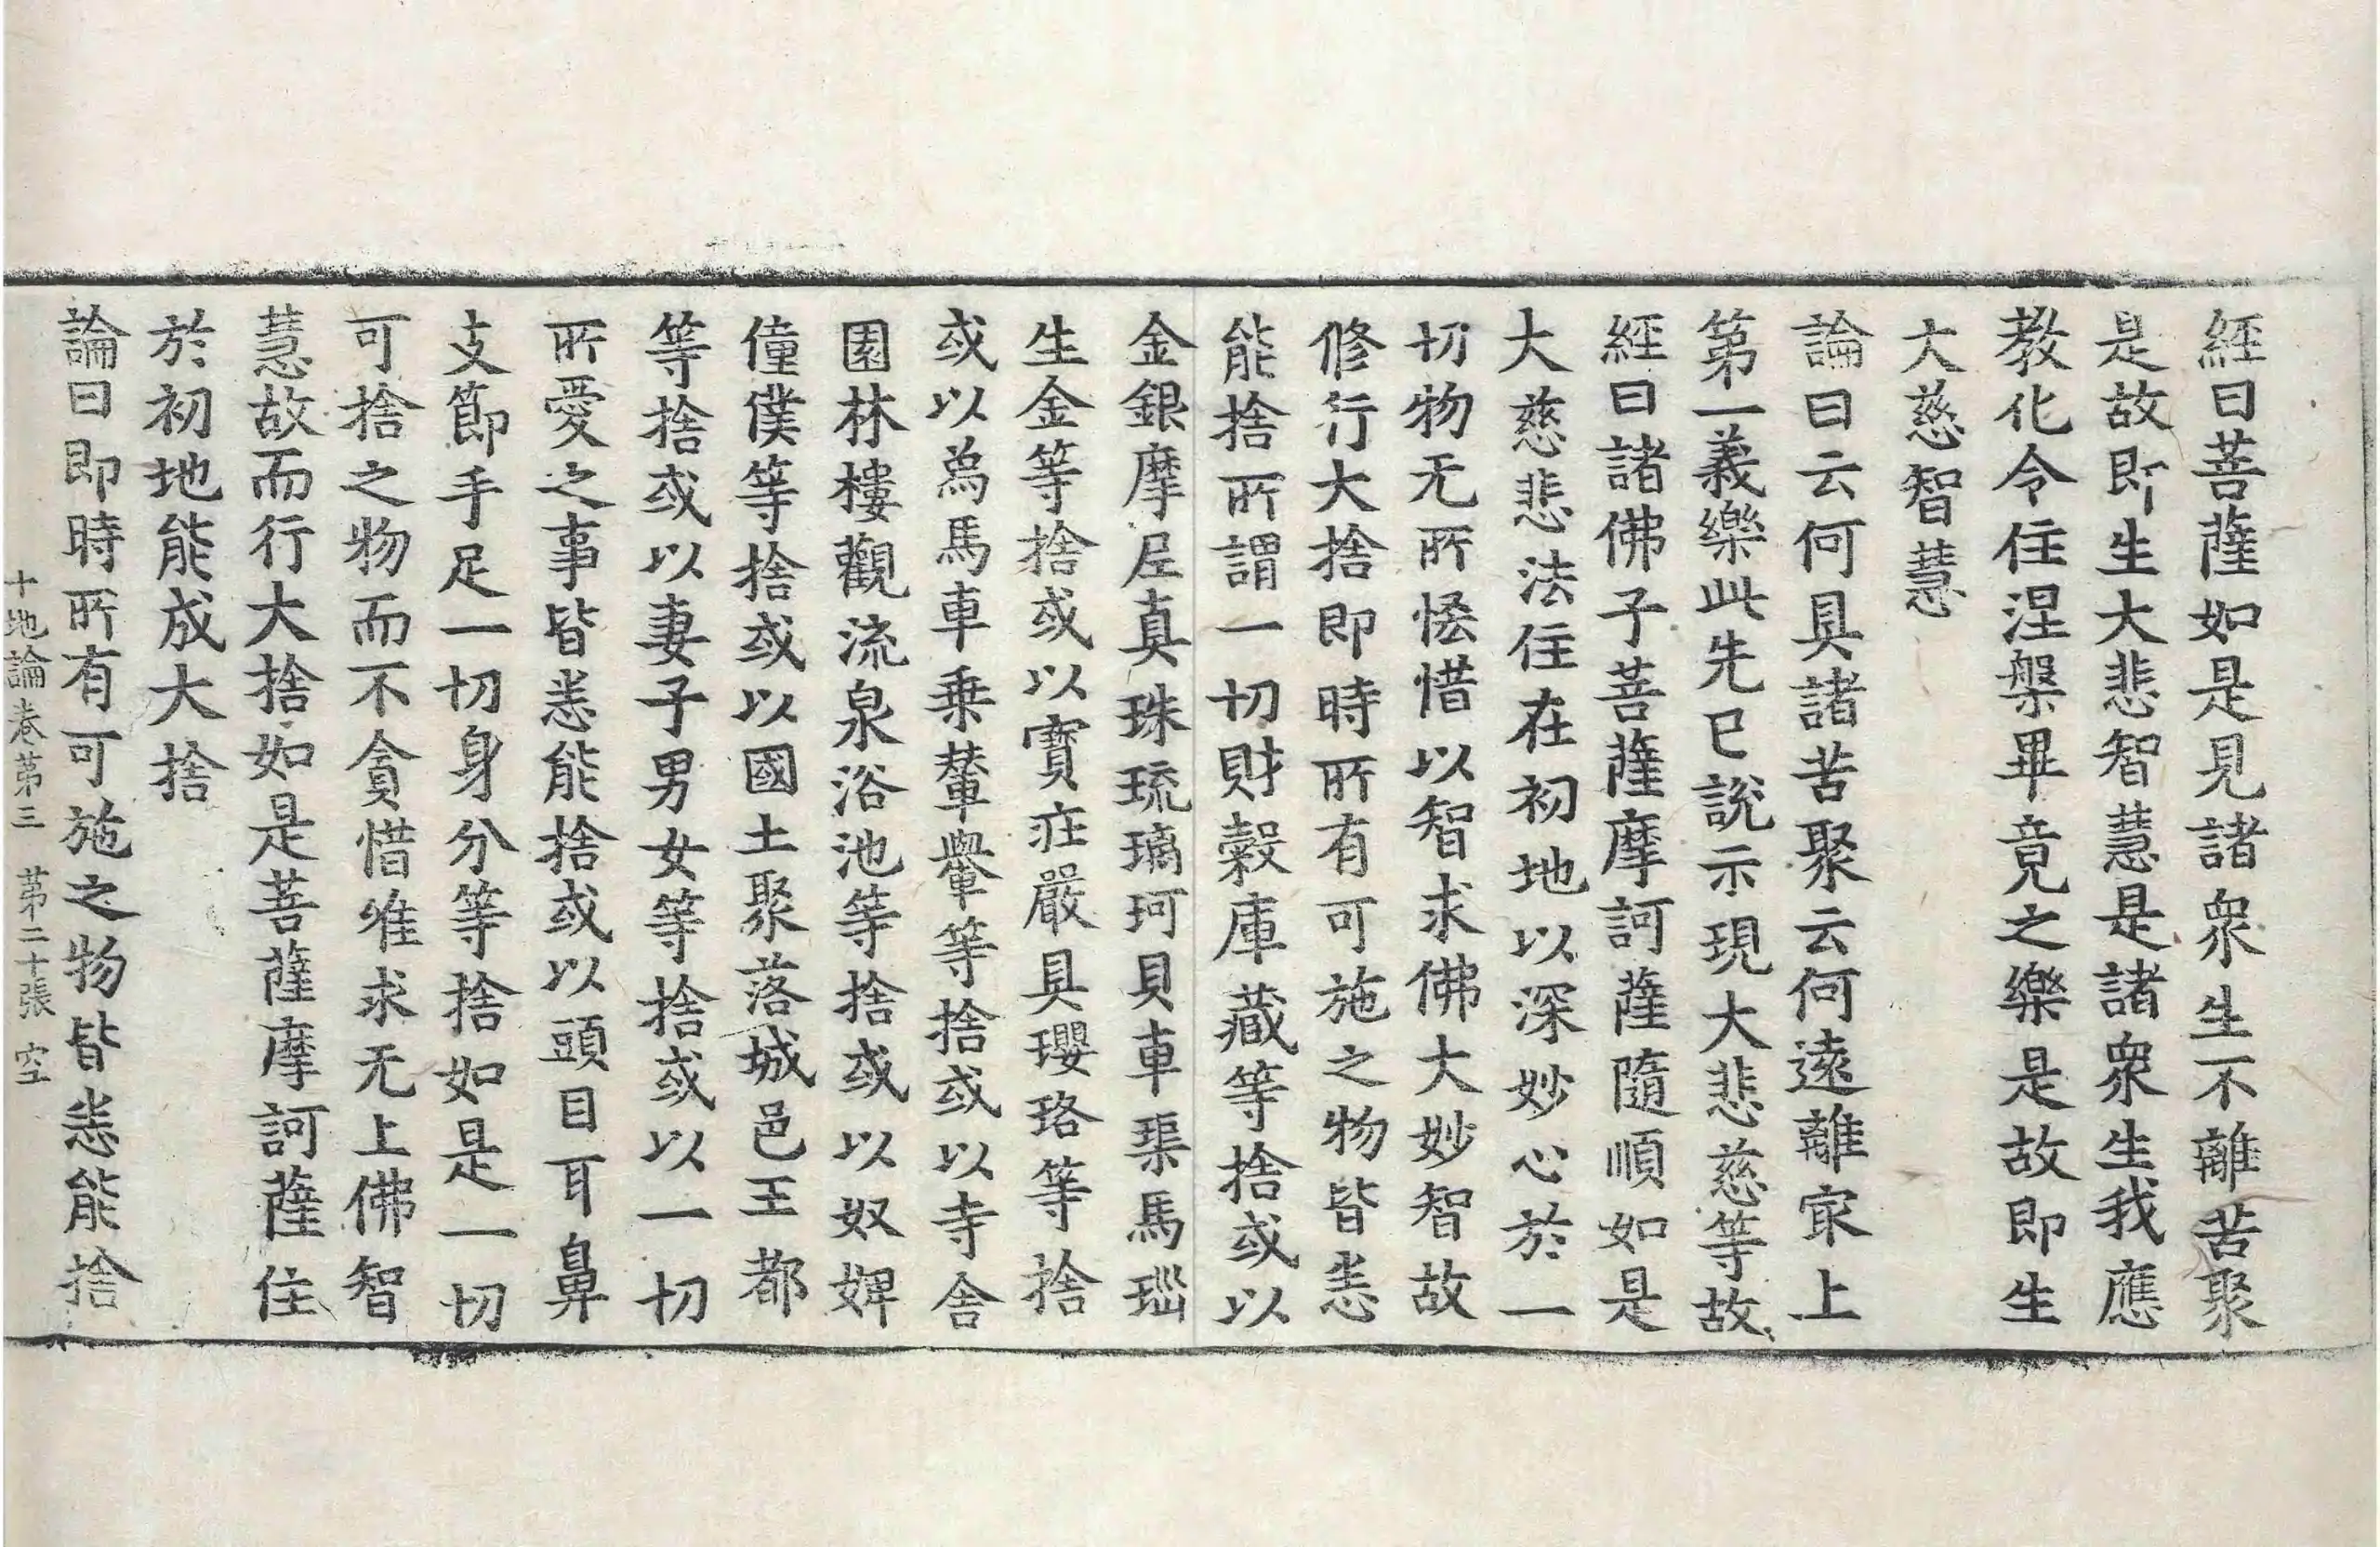 經曰菩薩如是見諸衆生不離苦聚
是故即生大悲智慧是諸衆生我應
教化令住涅槃畢竟之樂是故即生
大慈智慧
論曰云何具諸苦聚云何遠離㝡上
第一義樂此先已說示現大悲慈等故
經曰諸佛子菩薩摩訶薩隨順如是
大慈悲法住在初地以深妙心於一
切物无所恡惜以智求佛大妙智故
修行大捨即時所有可施之物皆悉
能捨所謂一切財穀庫藏等捨或以
金銀摩尼真珠琉璃珂貝車𤦲馬瑙
生金等捨或以寶莊嚴具瓔珞等捨
或以爲馬車乗輦轝等捨或以寺舍
園林樓觀流泉浴池等捨或以奴婢
僮僕等捨或以國土聚落城邑王都
等捨或以妻子男女等捨或以一切
所愛之事皆悉能捨或以頭目耳鼻
支節手足一切身分等捨如是一切
可捨之物而不貪惜唯求无上佛智
慧故而行大捨如是菩薩摩訶薩住
於初地能成大捨
論曰即時所有可施之物皆悉能捨
十地論卷第三 第二十張 空